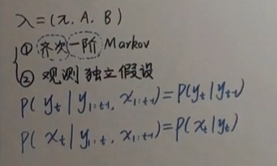 λ=(π, A, B)
① 齐次一阶 Markov
② 观测独立假设
P(yt | y1:t-1, x1:t-1)=P(yt | yt-1)
P(xt | y1:t, x1:t-1)=P(xt | yt)